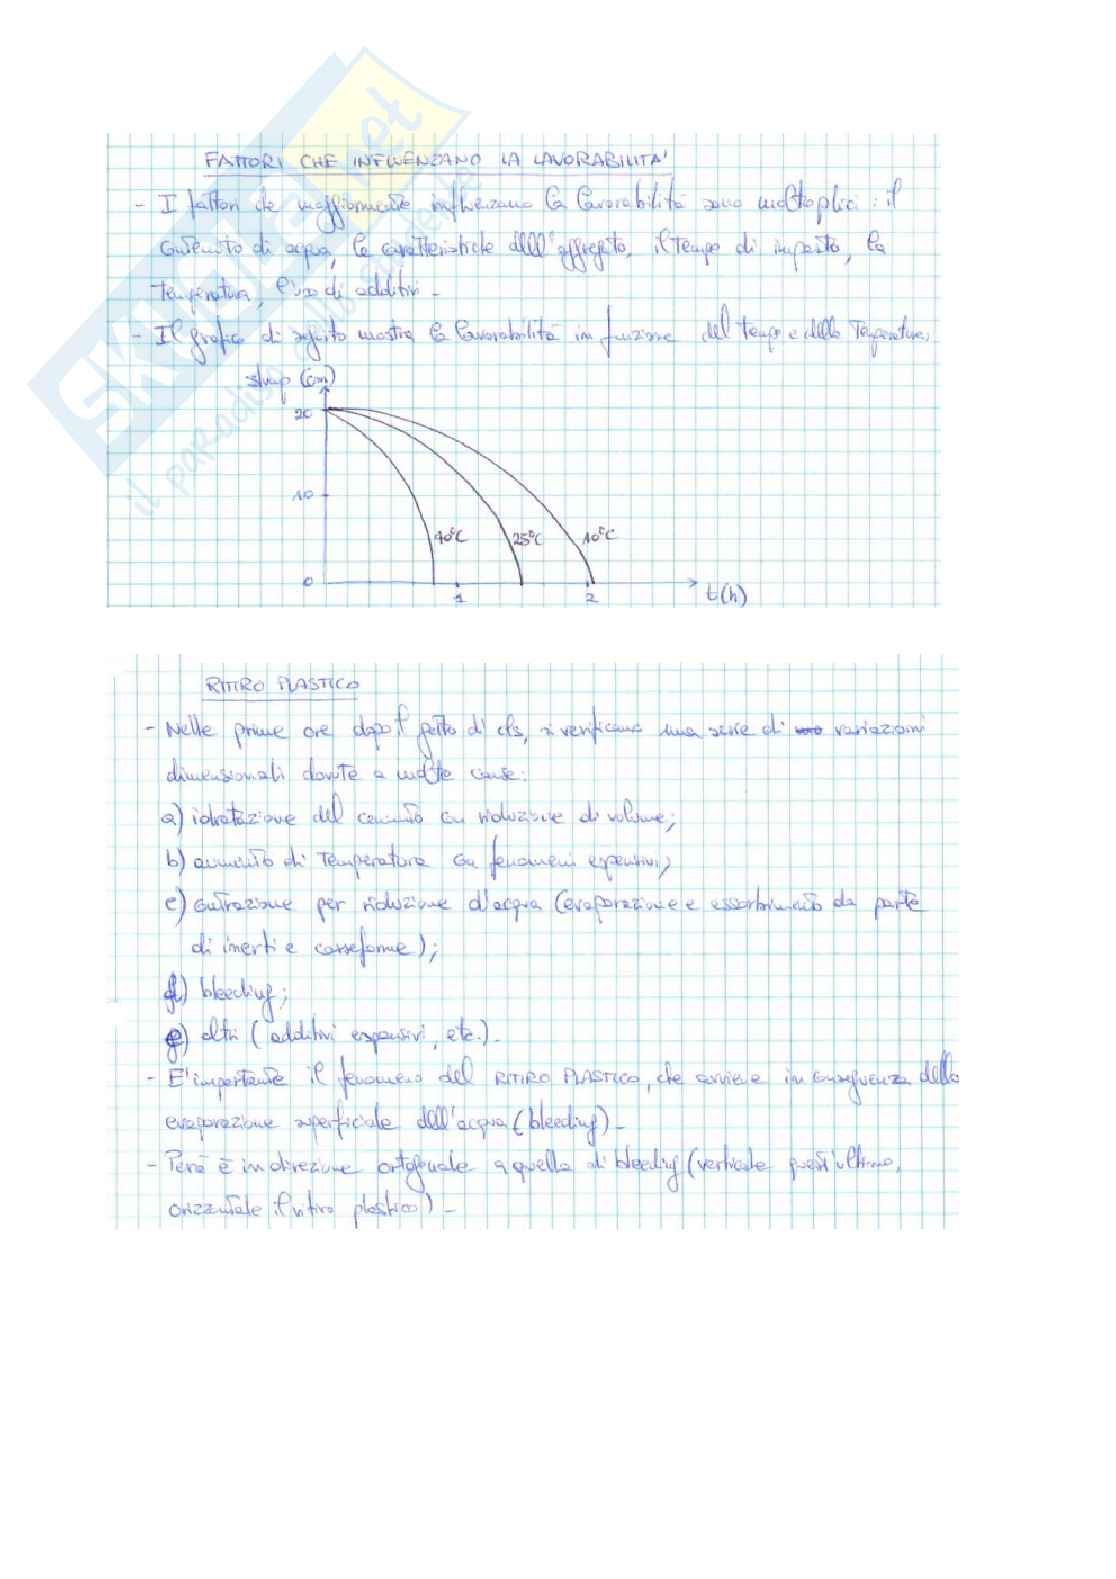 FATTORI CHE INFLUENZANO LA LAVORABILITA'
- I fattori che maggiormente influenzano la lavorabilità sono molteplici: il
contenuto di acqua, le caratteristiche dell'aggregato, il tempo di impasto, la
temperatura, l'uso di additivi -
- Il grafico di seguito mostra la lavorabilità in funzione del tempo e della temperatura,
slump (cm)
20
10
0
40°C
25°C
10°C
1
2
t(h)
SKUOLA.net
il paradiso dello studente
RITIRO PLASTICO
- Nelle prime ore dopo il getto di cls, si verificano una serie di variazioni
dimensionali dovute a molte cause:
a) idratazione del cemento con riduzione di volume;
b) aumento di temperatura con fenomeni espansivi;
c) contrazione per riduzione d'acqua (evaporazione e assorbimento da parte
di inerti e casseforme);
d) bleeding;
e) altri (additivi espansivi, etc.).
- E' importante il fenomeno del RITIRO PLASTICO, che avviene in conseguenza della
evaporazione superficiale dell'acqua (bleeding) -
- Però è in direzione ortogonale a quella di bleeding (verticale quest'ultimo,
orizzontale il ritiro plastico) -